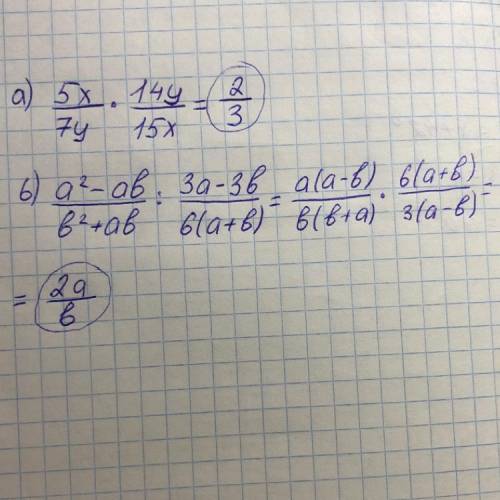 а) 5x/7y · 14y/15x = 2/3
б) a²-ab/b²+ab : 3a-3b/6(a+b) = a(a-b)/b(b+a) · 6(a+b)/3(a-b) =
= 2a/b